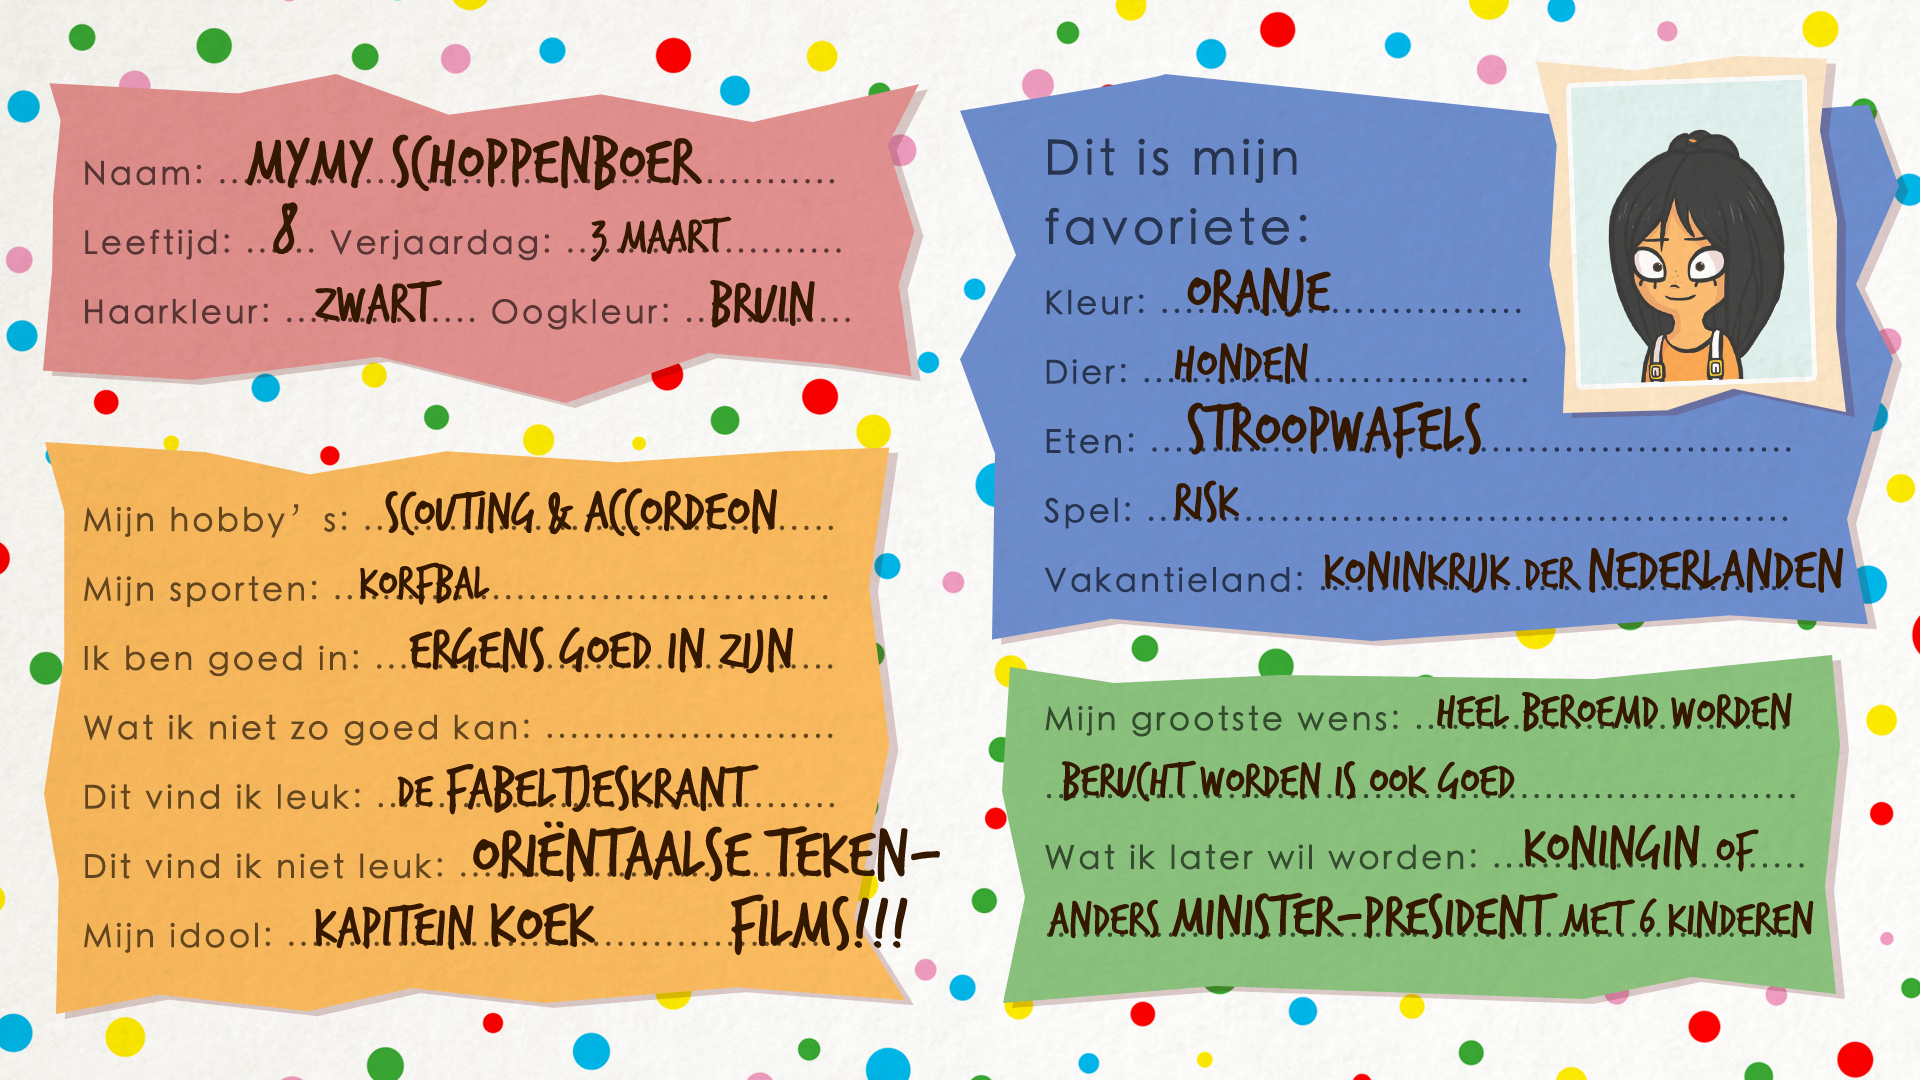 Naam: MYMY SCHOPPENBOER
Leeftijd: 8 Verjaardag: 3 MAART
Haarkleur: ZWART Oogkleur: BRUIN
Mijn hobby’s: SCOUTING & ACCORDEON
Mijn sporten: KORFBAL
Ik ben goed in: ERGENS GOED IN ZIJN
Wat ik niet zo goed kan:
Dit vind ik leuk: DE FABELTJESKRANT
Dit vind ik niet leuk: ORIËNTAALSE TEKEN-
Mijn idool: KAPITEIN KOEK FILMS!!!
Dit is mijn
favoriete:
Kleur: ORANJE
Dier: HONDEN
Eten: STROOPWAFELS
Spel: RISK
Vakantieland: KONINKRIJK DER NEDERLANDEN
Mijn grootste wens: HEEL BEROEMD WORDEN
BERUCHT WORDEN IS OOK GOED
Wat ik later wil worden: KONINGIN OF
ANDERS MINISTER-PRESIDENT MET 6 KINDEREN